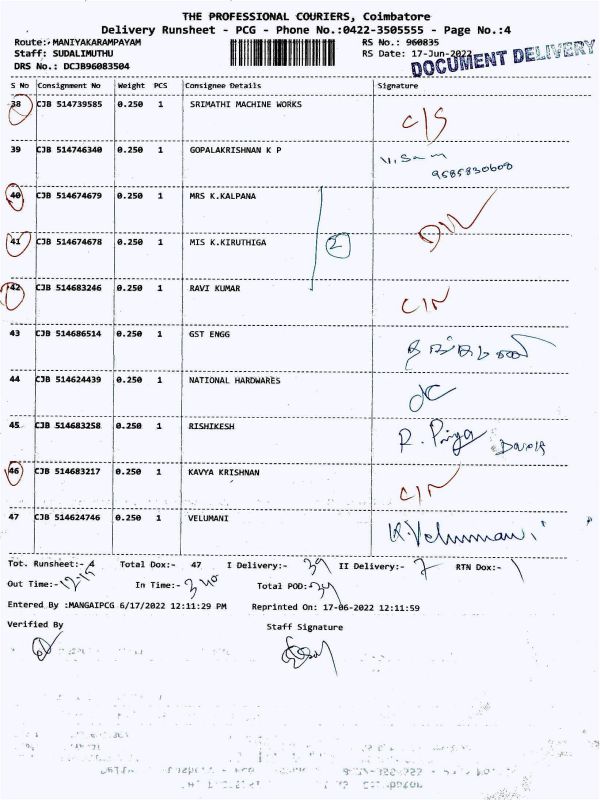 THE PROFESSIONAL COURIERS, Coimbatore
Delivery Runsheet - PCG - Phone No.:0422-3505555 - Page No.:4
Route: MANIYAKARAMPAYAM RS No.: 960835
Staff: SUDALIMUTHU RS Date: 17-Jun-2022
DRS No.: DCJB96083504
DOCUMENT DELIVERY
S No Consignment No Weight PCS Consignee Details Signature
38 CJB 514739585 0.250 1 SRIMATHI MACHINE WORKS C/S
39 CJB 514746340 0.250 1 GOPALAKRISHNAN K P
9585830608
40 CJB 514674679 0.250 1 MRS K.KALPANA
41 CJB 514674678 0.250 1 MIS K.KIRUTHIGA 2
42 CJB 514683246 0.250 1 RAVI KUMAR C/N
43 CJB 514686514 0.250 1 GST ENGG
44 CJB 514624439 0.250 1 NATIONAL HARDWARES
45 CJB 514683258 0.250 1 RISHIKESH R. Priya
46 CJB 514683217 0.250 1 KAVYA KRISHNAN C/N
47 CJB 514624746 0.250 1 VELUMANI K.Velumani
Tot. Runsheet:- 4 Total Dox:- 47 I Delivery:- 39 II Delivery:- 7 RTN Dox:- 1
Out Time:- 12.15 In Time:- 3 40 Total POD:- 39
Entered By :MANGAIPCG 6/17/2022 12:11:29 PM Reprinted On: 17-06-2022 12:11:59
Verified By Staff Signature